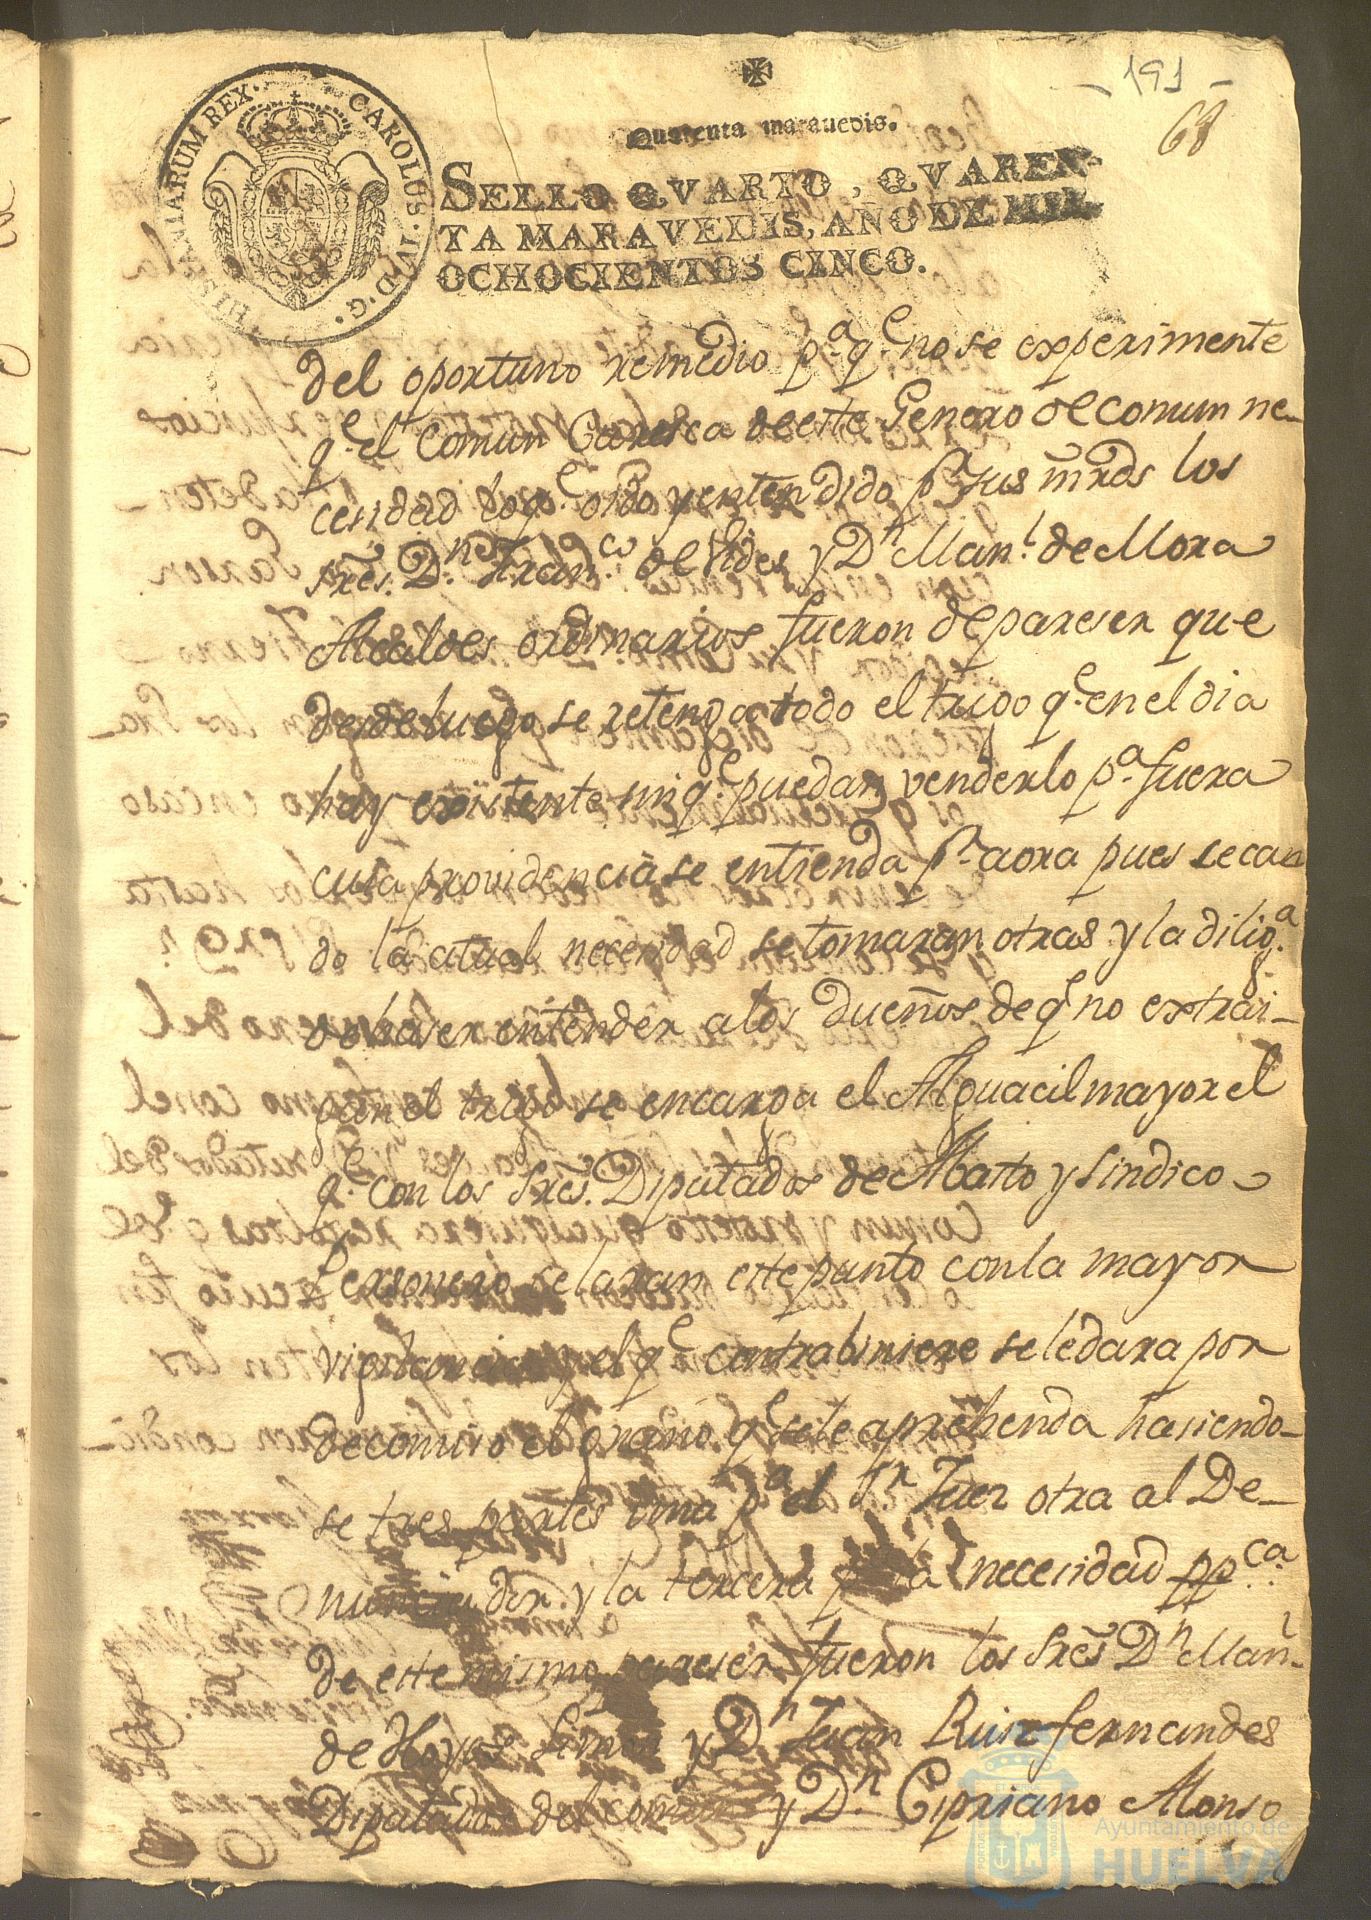 - 191 -
68
Quarenta maravedis.
HISPANIARUM REX. CAROLUS. IV. D. G.
SELLO QVARTO, QVAREN-
TA MARAVEDIS, AÑO DE MIL
OCHOCIENTOS CINCO.
del oportuno remedio pª qe no se experimente
qe el Comun Caresca de este Genero de comun ne-
cesidad lo qe oido y entendido pr sus mrds los
sres. Dnes Franco de Vides y Dn Manl de Mora
Alcaldes ordinarios fueron de pareser que
desde luego se retenga todo el trigo qe en el dia
hay existente sin qe puedan venderlo pª fuera
cuia providencia se entienda pr aora pues secan
do la atual necesidad se tomaran otras y la diligª
de haser entender a los dueños de qe no extrai-
gan el trigo se encarga el Alguacil mayor el
qe con los Sres. Diputados de Abasto y Sindico
Personero selaran este punto con la mayor
vigilancia y el qe contrabiniere se le dara por
decomiso el grano qe se le aprehenda hasiendo-
se tres partes una pª el Sr Juez otra al De-
nunciador y la tercera pª la necesidad ppca
de este mismo pareser fueron los Sres Dn Man-
de Hoyos Limon y Dn Juan Ruiz fernandes
Diputados del comun y Dn Cipriano Alonso
Ayuntamiento de
HUELVA